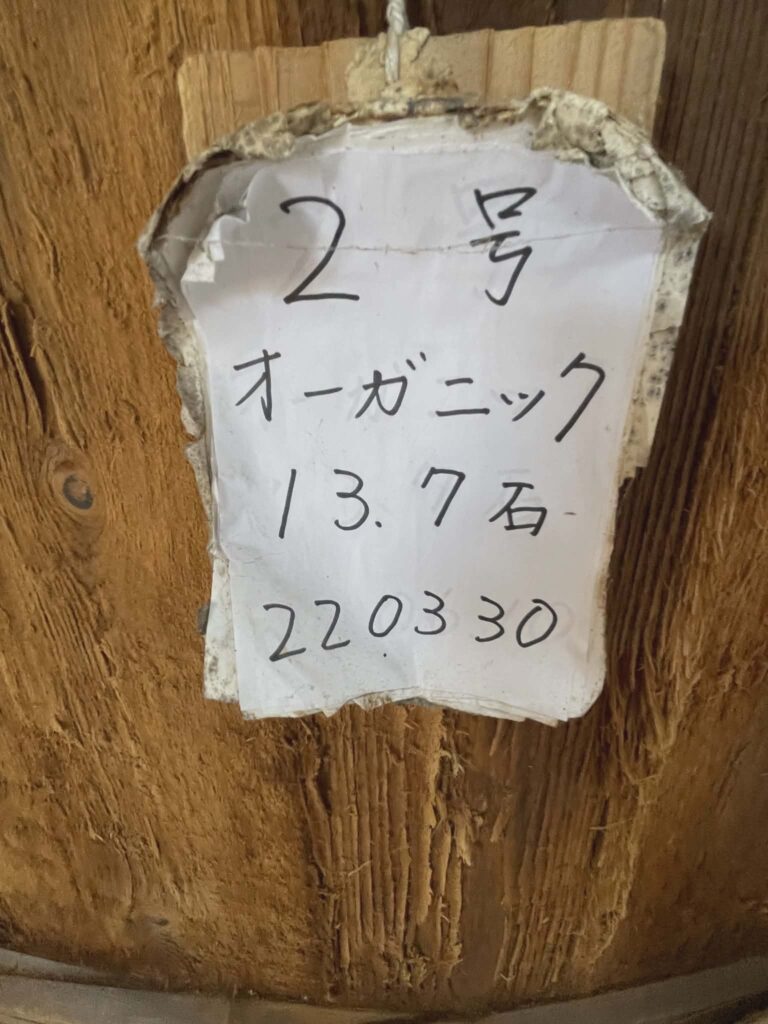 2号
オーガニック
13.7石
220330